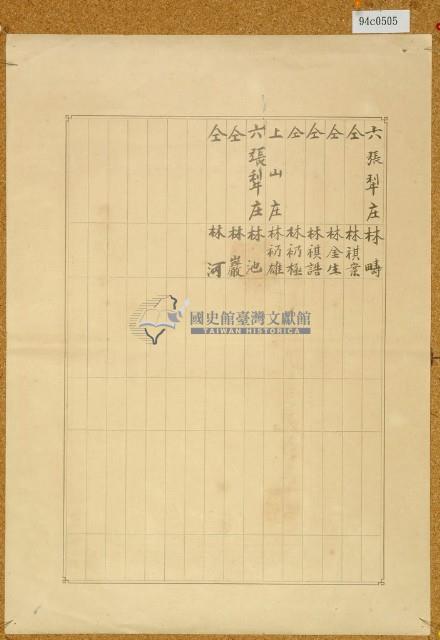 94c0505
六張犁庄林疇
仝林祺業
仝林金生
仝林祺諧
仝林礽極
上山庄林礽雄
六張犁庄林池
仝林巖
仝林河
國史館臺灣文獻館
TAIWAN HISTORICA